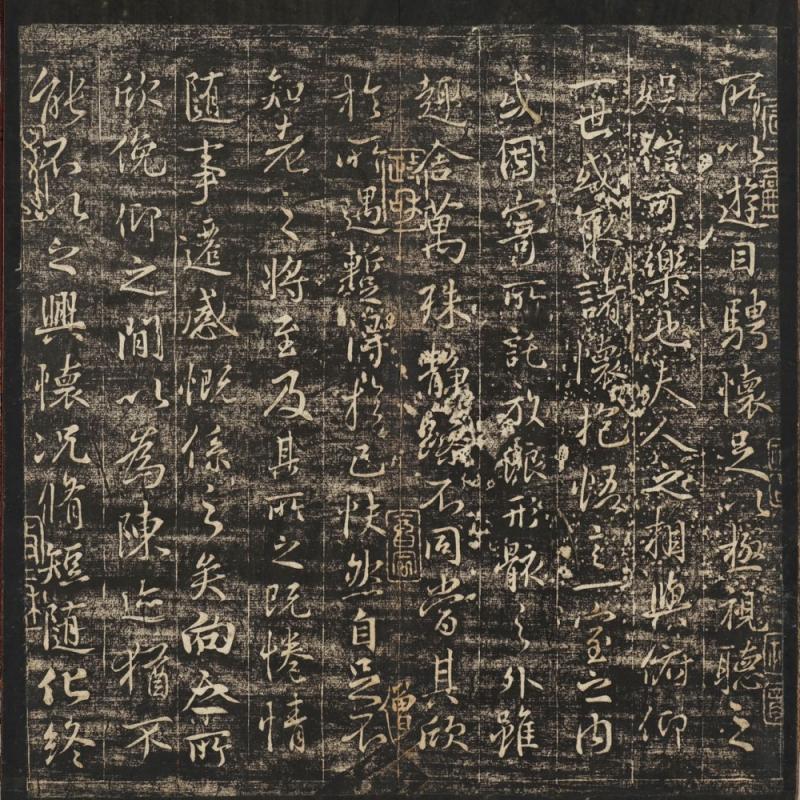 所以遊目騁懷足以極視聽之
娛信可樂也夫人之相與俯仰
一世或取諸懷抱悟言一室之內
或因寄所託放浪形骸之外雖
趣舍萬殊靜躁不同當其欣
於所遇蹔得於己怏然自足不
知老之將至及其所之既惓情
隨事遷感慨係之矣向之所
欣俛仰之閒以為陳迹猶不
能不以之興懷況脩短隨化終
僧